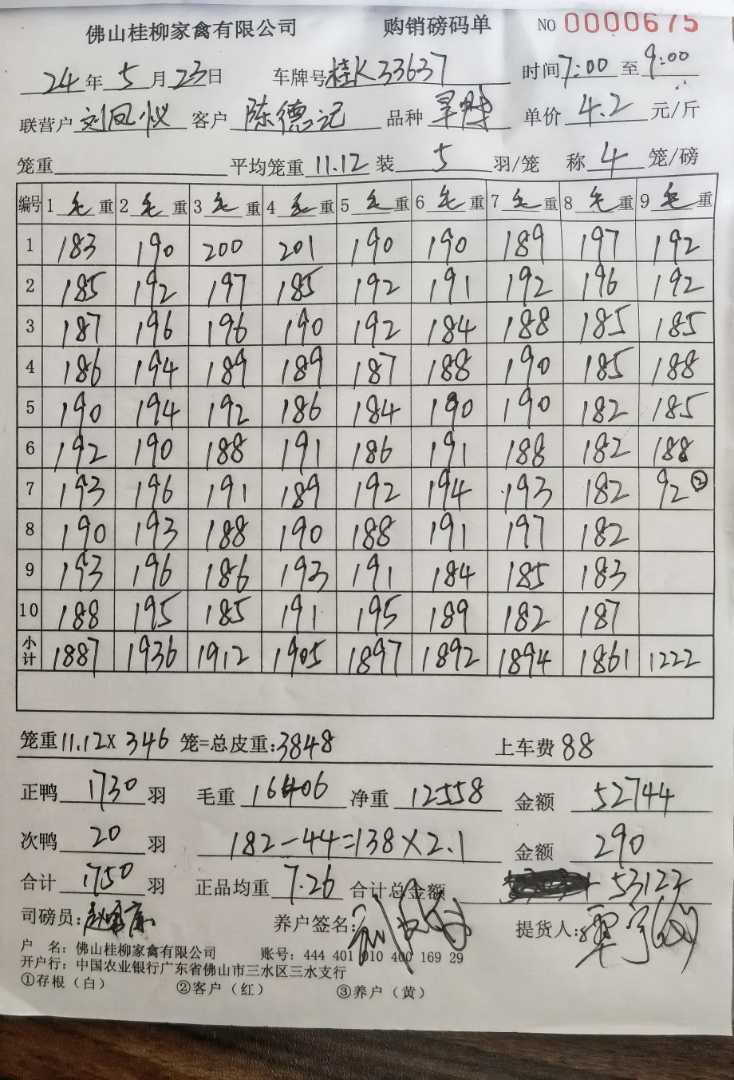 佛山桂柳家禽有限公司 购销磅码单 NO 0000675
24年5月23日 车牌号桂K33637 时间7:00至9:00
联营户刘凤仪 客户陈德记 品种 单价4.2元/斤
笼重 平均笼重11.12装5羽/笼 称4笼/磅
编号 1毛重 2毛重 3毛重 4毛重 5毛重 6毛重 7毛重 8毛重 9毛重
1 183 190 200 201 190 190 189 197 192
2 185 192 197 185 192 191 192 196 192
3 187 196 196 190 192 184 188 185 185
4 186 194 189 189 187 188 190 185 188
5 190 194 192 186 184 190 190 182 185
6 192 190 188 191 186 191 188 182 188
7 193 196 191 189 192 194 193 182 92②
8 190 193 188 190 188 191 197 182
9 193 196 186 193 191 184 185 183
10 188 195 185 191 195 189 182 187
小计 1887 1936 1912 1905 1897 1892 1894 1861 1222
笼重11.12×346笼=总皮重:3848 上车费88
正鸭1730羽 毛重16406 净重12558 金额52744
次鸭20羽 182-44=138×2.1 金额290
合计1750羽 正品均重7.26 合计总金额 53122
司磅员: 养户签名: 提货人:
户 名:佛山桂柳家禽有限公司 账号:444 401 010 400 169 29
开户行:中国农业银行广东省佛山市三水区三水支行
①存根(白) ②客户(红) ③养户(黄)